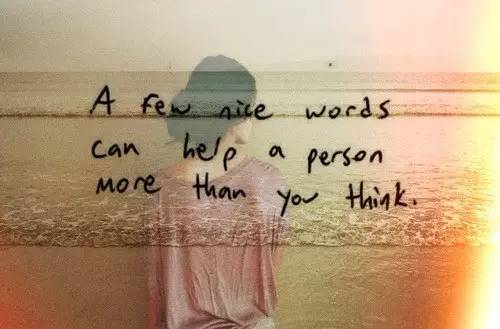 A few nice words
can help a person
more than you think.